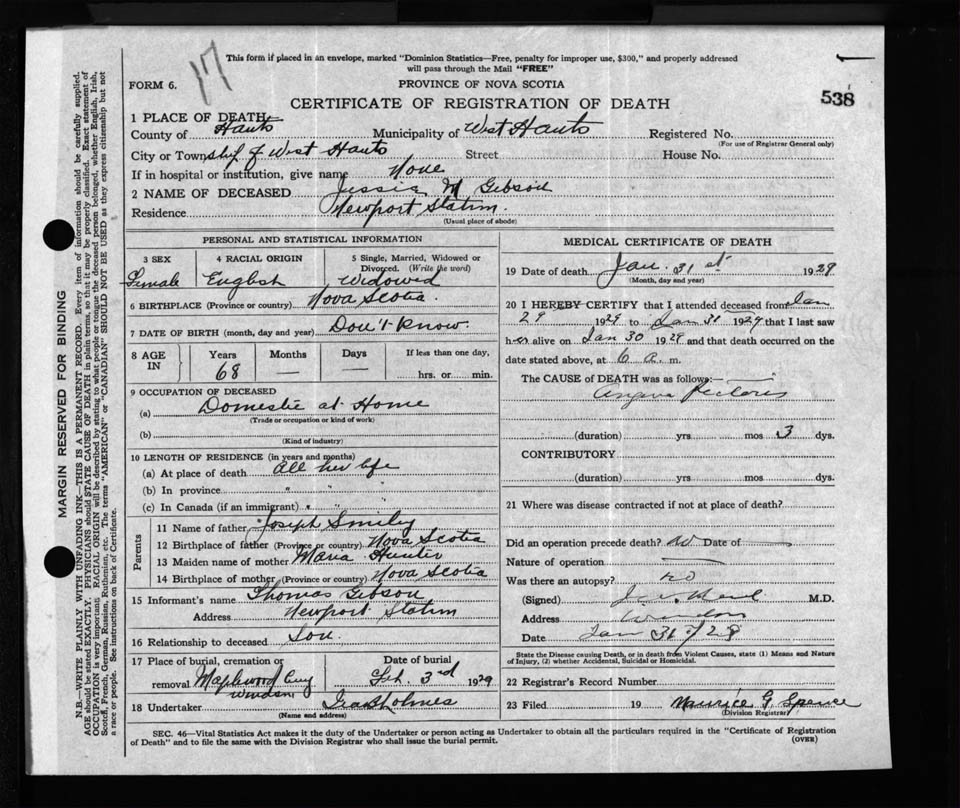 17
This form if placed in an envelope, marked "Dominion Statistics—Free, penalty for improper use, $300," and properly addressed
will pass through the Mail "FREE"
FORM 6.
PROVINCE OF NOVA SCOTIA
CERTIFICATE OF REGISTRATION OF DEATH
538
1 PLACE OF DEATH
County of Hants Municipality of West Hants Registered No.
(For use of Registrar General only)
City or Township of West Hants Street House No.
If in hospital or institution, give name None
2 NAME OF DECEASED Jessie M Gibson
Residence Newport Station.
(Usual place of abode)
PERSONAL AND STATISTICAL INFORMATION
3 SEX 4 RACIAL ORIGIN 5 Single, Married, Widowed or Divorced. (Write the word)
Female English Widowed
6 BIRTHPLACE (Province or country) Nova Scotia.
7 DATE OF BIRTH (month, day and year) Don't Know.
8 AGE IN Years Months Days If less than one day,
68 — — hrs. or min.
9 OCCUPATION OF DECEASED
(a) Domestic at Home
(Trade or occupation or kind of work)
(b)
(Kind of industry)
10 LENGTH OF RESIDENCE (in years and months)
(a) At place of death All her life
(b) In province " "
(c) In Canada (if an immigrant) " "
Parents
11 Name of father Joseph Smiley
12 Birthplace of father (Province or country) Nova Scotia
13 Maiden name of mother Maria Hunter
14 Birthplace of mother (Province or country) Nova Scotia
15 Informant's name Thomas Gibson
Address Newport Station
16 Relationship to deceased Son.
17 Place of burial, cremation or removal Maplewood Cemy Windsor
Date of burial Feb. 3rd 1929
18 Undertaker Holmes
(Name and address)
MEDICAL CERTIFICATE OF DEATH
19 Date of death Jan. 31st 1929
(Month, day and year)
20 I HEREBY CERTIFY that I attended deceased from Jan
29 1929 to Jan 31 1929 that I last saw
h er alive on Jan 30 1929 and that death occurred on the
date stated above, at 6 a. m.
The CAUSE of DEATH was as follows:
Angina Pectoris
(duration) yrs. mos 3 dys.
CONTRIBUTORY
(duration) yrs. mos dys.
21 Where was disease contracted if not at place of death?
Did an operation precede death? no Date of
Nature of operation
Was there an autopsy? no
(Signed) M.D.
Address Windsor
Date Jan 31 / 29
State the Disease causing Death, or in death from Violent Causes, state (1) Means and Nature
of Injury, (2) whether Accidental, Suicidal or Homicidal.
22 Registrar's Record Number
23 Filed 19 Maurice G. Spence
(Division Registrar)
SEC. 46—Vital Statistics Act makes it the duty of the Undertaker or person acting as Undertaker to obtain all the particulars required in the "Certificate of Registration
of Death" and to file the same with the Division Registrar who shall issue the burial permit.
(OVER)
MARGIN RESERVED FOR BINDING
N.B.—WRITE PLAINLY WITH UNFADING INK—THIS IS A PERMANENT RECORD. Every item of information should be carefully supplied.
AGE should be stated EXACTLY. PHYSICIANS should STATE CAUSE OF DEATH in plain terms, so that it may be properly classified. Exact statement of
OCCUPATION is very important. RACIAL ORIGIN will be described by stating to what people or tongue the deceased person belonged, whether English, Irish,
Scotch, French, German, Russian, Ruthenian, etc. The terms "AMERICAN" or "CANADIAN" SHOULD NOT BE USED as they express citizenship but not
a race or people. See instructions on back of Certificate.